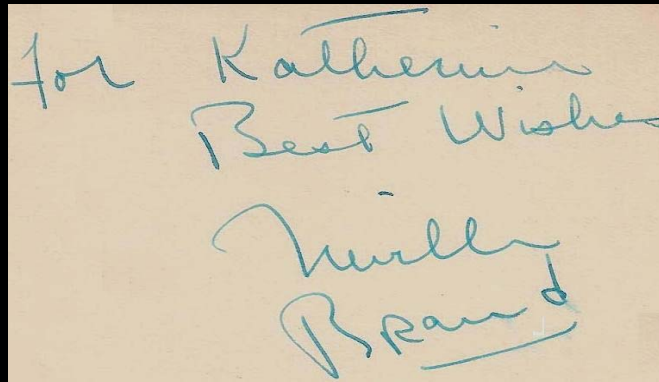 For Katherine
Best Wishes
Neville
Brand